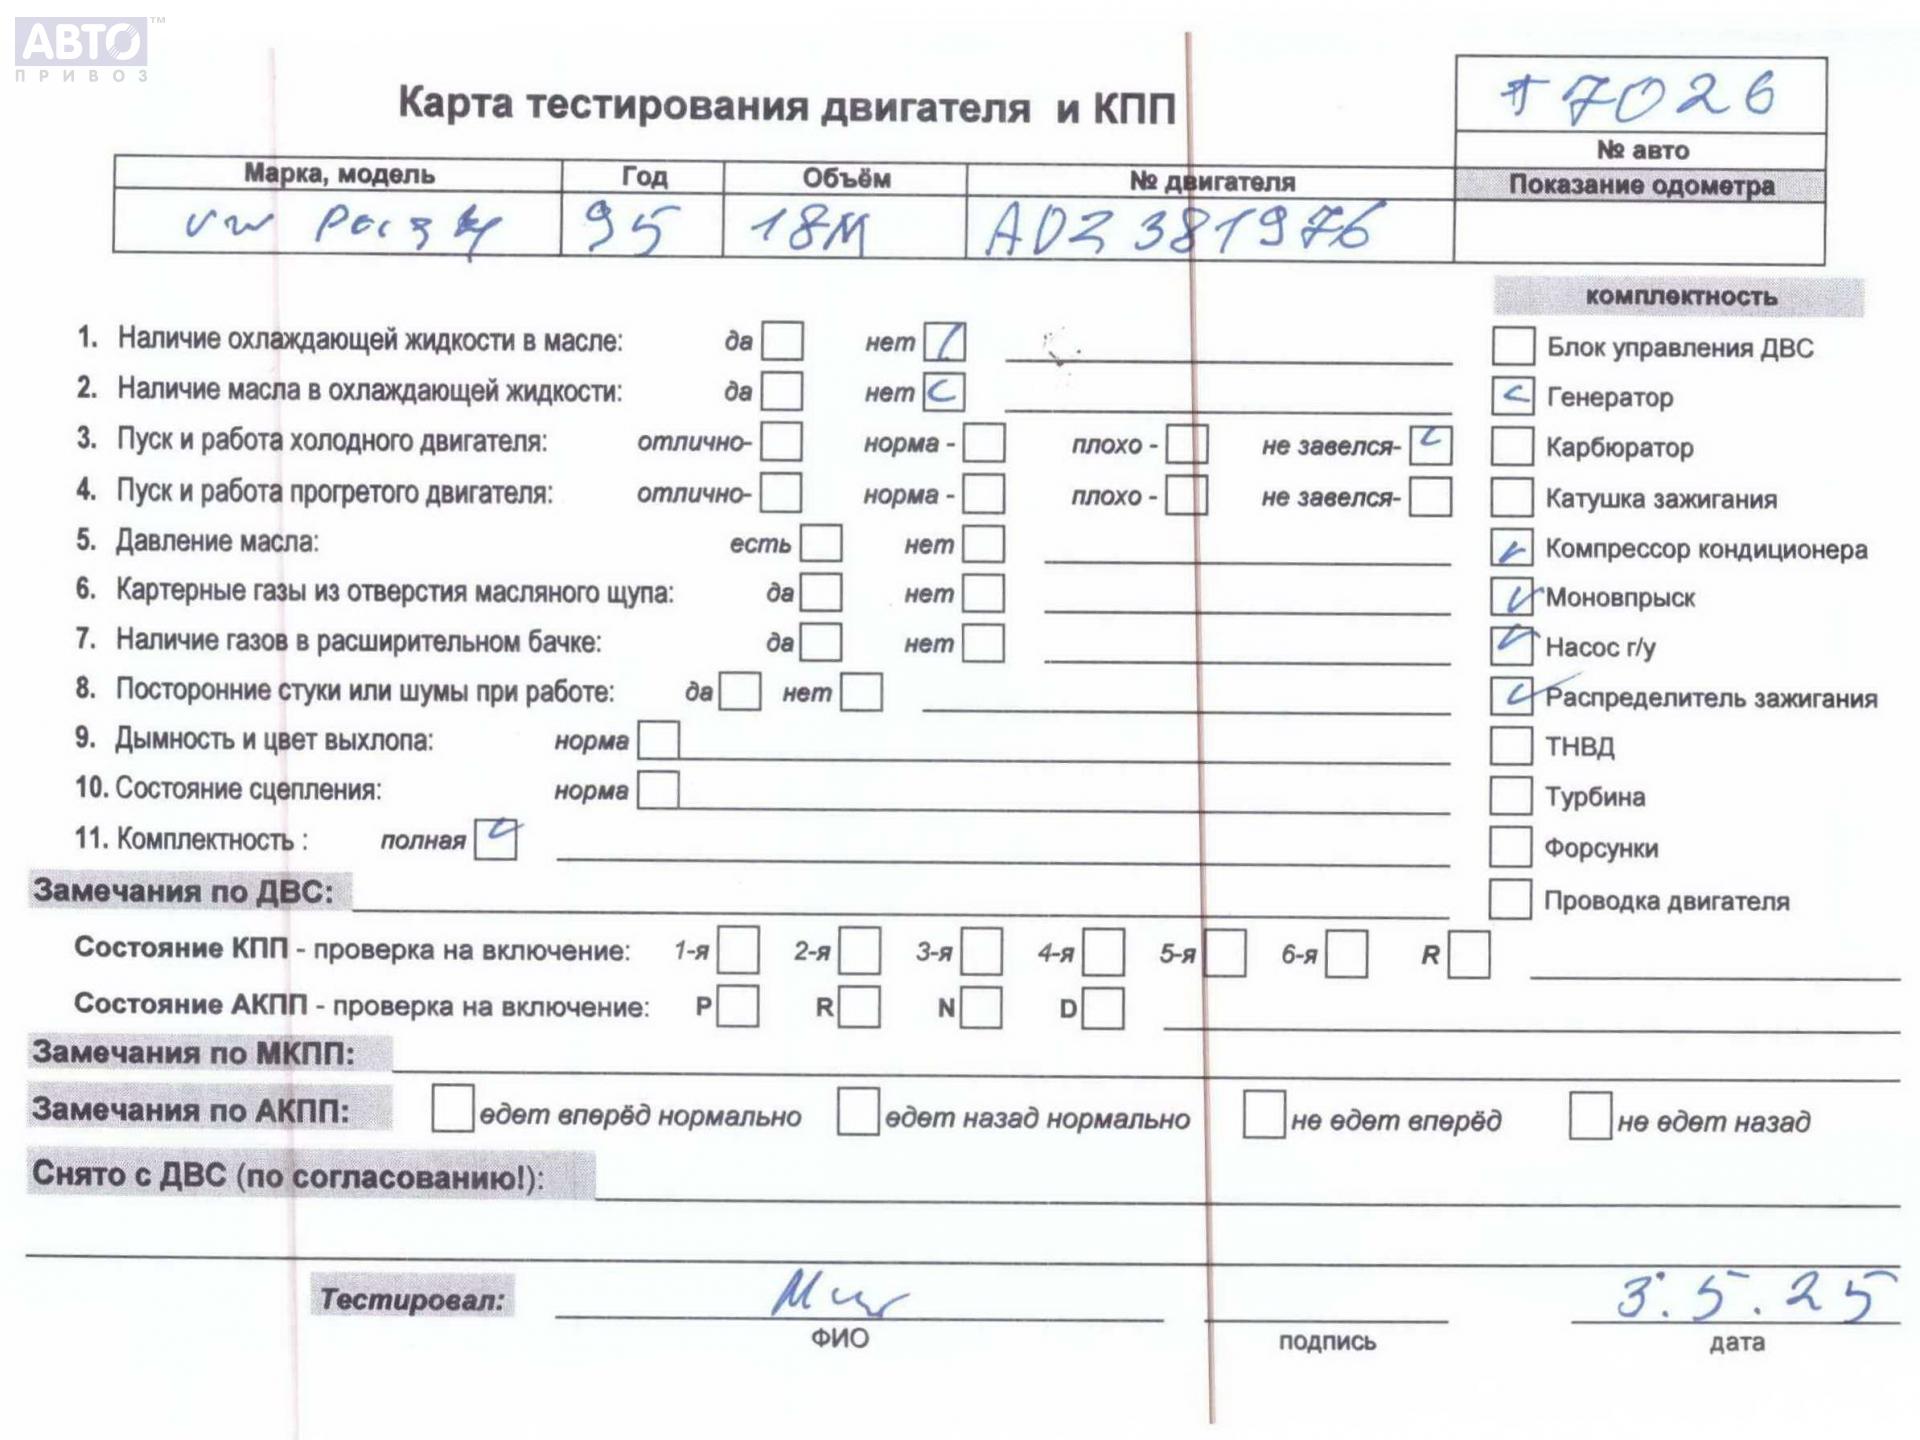 АВТО™
ПРИВОЗ
Карта тестирования двигателя и КПП
7026
№ авто
Марка, модель Год Объём № двигателя Показание одометра
vw 95 18м ADZ 381976
комплектность
1. Наличие охлаждающей жидкости в масле: да нет
Блок управления ДВС
2. Наличие масла в охлаждающей жидкости: да нет
Генератор
3. Пуск и работа холодного двигателя: отлично- норма - плохо - не завелся-
Карбюратор
4. Пуск и работа прогретого двигателя: отлично- норма - плохо - не завелся-
Катушка зажигания
5. Давление масла: есть нет
Компрессор кондиционера
6. Картерные газы из отверстия масляного щупа: да нет
Моновпрыск
7. Наличие газов в расширительном бачке: да нет
Насос г/у
8. Посторонние стуки или шумы при работе: да нет
Распределитель зажигания
9. Дымность и цвет выхлопа: норма
ТНВД
10. Состояние сцепления: норма
Турбина
11. Комплектность : полная
Форсунки
Замечания по ДВС:
Проводка двигателя
Состояние КПП - проверка на включение: 1-я 2-я 3-я 4-я 5-я 6-я R
Состояние АКПП - проверка на включение: P R N D
Замечания по МКПП:
Замечания по АКПП: едет вперёд нормально едет назад нормально не едет вперёд не едет назад
Снято с ДВС (по согласованию!):
Тестировал: 3.5.25
ФИО подпись дата